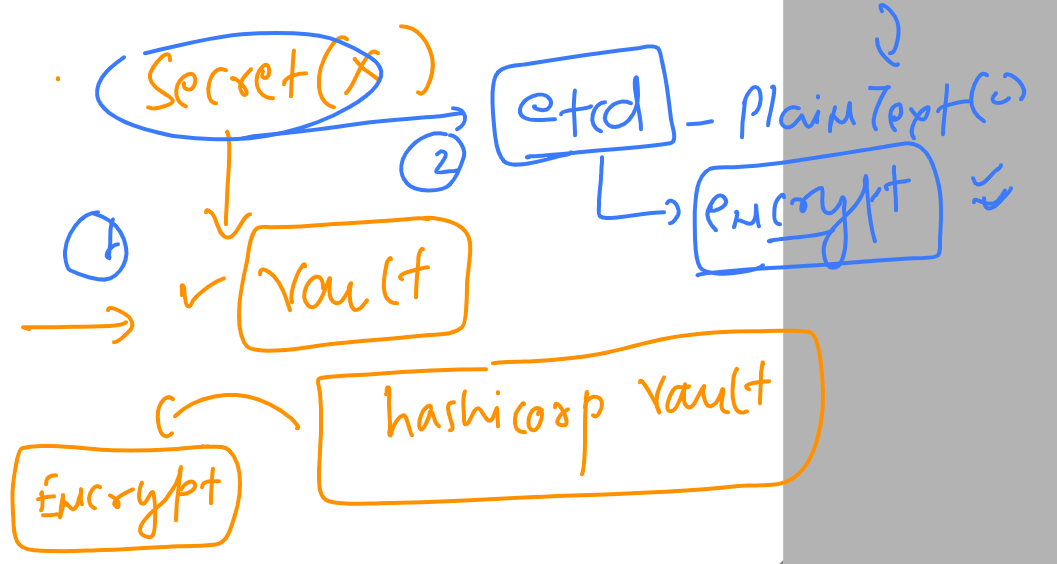 Secret(x)
etcd - PlainText(c)
2
encrypt
1
vault
hashicorp vault
Encrypt